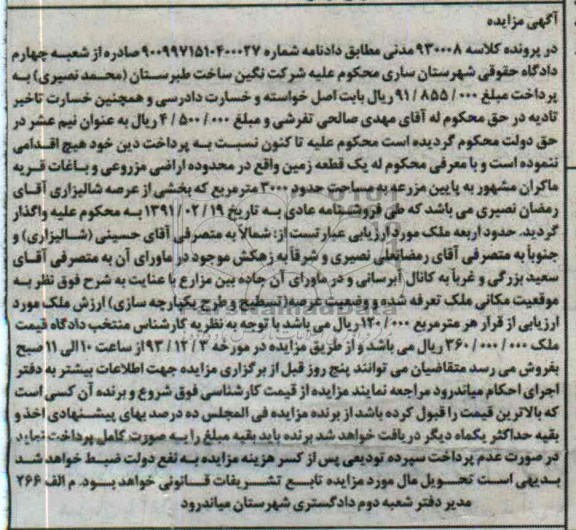 آگهی مزایده
در پرونده کلاسه ۹۳۰۰۰۸ مدنی مطابق دادنامه شماره ۹۰۰۹۹۷۱۵۱۰۴۰۰۰۲۷ صادره از شعبه چهارم
دادگاه حقوقی شهرستان ساری محکوم علیه شرکت نگین ساخت طبرستان (محمد نصیری) به
پرداخت مبلغ ۹۱/۸۵۵/۰۰۰ ریال بابت اصل خواسته و خسارت دادرسی و همچنین خسارت تاخیر
تادیه در حق محکوم له آقای مهدی صالحی تفرشی و مبلغ ۴/۵۰۰/۰۰۰ ریال به عنوان نیم عشر در
حق دولت محکوم گردیده است محکوم علیه تا کنون نسبت به پرداخت دین خود هیچ اقدامی
ننموده است و با معرفی محکوم له یک قطعه زمین واقع در محدوده اراضی مزروعی و باغات قریه
ماکران مشهور به پایین مزرعه به مساحت حدود ۳۰۰۰ مترمربع که بخشی از عرصه شالیزاری آقای
رمضان نصیری می باشد که طی فروشنامه عادی به تاریخ ۱۳۹۱/۰۲/۱۹ به محکوم علیه واگذار
گردید. حدود اربعه ملک مورد ارزیابی عبارتست از: شمالاً به متصرفی آقای حسینی (شالیزاری) و
جنوباً به متصرفی آقای رمضانعلی نصیری و شرقاً به زهکش موجود در ماورای آن به متصرفی آقای
سعید بزرگی و غرباً به کانال آبرسانی و در ماورای آن جاده بین مزارع با عنایت به شرح فوق نظر به
موقعیت مکانی ملک تعرفه شده و وضعیت عرصه (تسطیح و طرح یکپارچه سازی) ارزش ملک مورد
ارزیابی از قرار هر مترمربع ۱۲۰/۰۰۰ ریال می باشد با توجه به نظریه کارشناس منتخب دادگاه قیمت
ملک ۳۶۰/۰۰۰/۰۰۰ ریال می باشد و از طریق مزایده در مورخه ۹۳/۱۲/۳ از ساعت ۱۰ الی ۱۱ صبح
بفروش می رسد متقاضیان می توانند پنج روز قبل از برگزاری مزایده جهت اطلاعات بیشتر به دفتر
اجرای احکام میاندرود مراجعه نمایند مزایده از قیمت کارشناسی فوق شروع و برنده آن کسی است
که بالاترین قیمت را قبول کرده باشد از برنده مزایده فی المجلس ده درصد بهای پیشنهادی اخذ و
بقیه حداکثر یکماه دیگر دریافت خواهد شد برنده باید بقیه مبلغ را به صورت کامل پرداخت نماید
در صورت عدم پرداخت سپرده تودیعی پس از کسر هزینه مزایده به نفع دولت ضبط خواهد شد
بدیهی است تحویل مال مورد مزایده تابع تشریفات قانونی خواهد بود. م الف ۲۶۶
مدیر دفتر شعبه دوم دادگستری شهرستان میاندرود